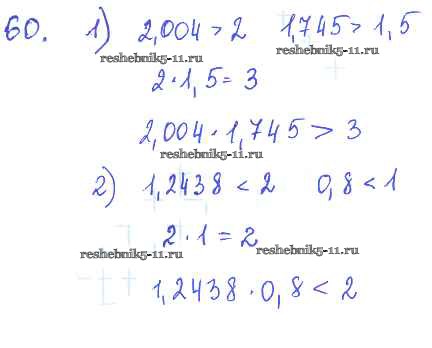 60. 1) 2,004 > 2 1,745 > 1,5
reshebnik5-11.ru reshebnik5-11.ru
2 · 1,5 = 3
2,004 · 1,745 > 3
reshebnik5-11.ru
2) 1,2438 < 2 0,8 < 1
2 · 1 = 2
reshebnik5-11.ru reshebnik5-11.ru
1,2438 · 0,8 < 2